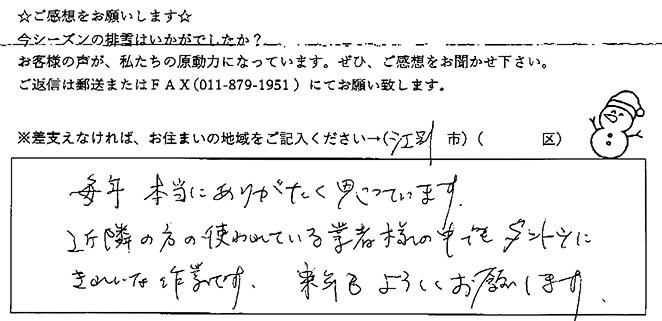 ☆ご感想をお願いします☆
今シーズンの排雪はいかがでしたか？
お客様の声が、私たちの原動力になっています。ぜひ、ご感想をお聞かせ下さい。
ご返信は郵送またはＦＡＸ(011-879-1951）にてお願い致します。
※差支えなければ、お住まいの地域をご記入ください→(江別 市）（ 区）
毎年 本当にありがたく思っています。
近隣の方の使われている業者様の中でもダントツに
きれいな作業です。 来年もよろしくお願いします。